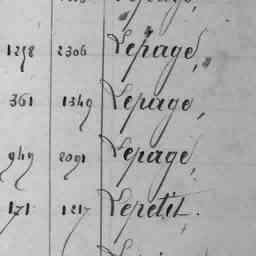 1298 2306 Lepage,
361 1349 Lepage,
949 2091 Lepage,
171 1217 Lepetit.